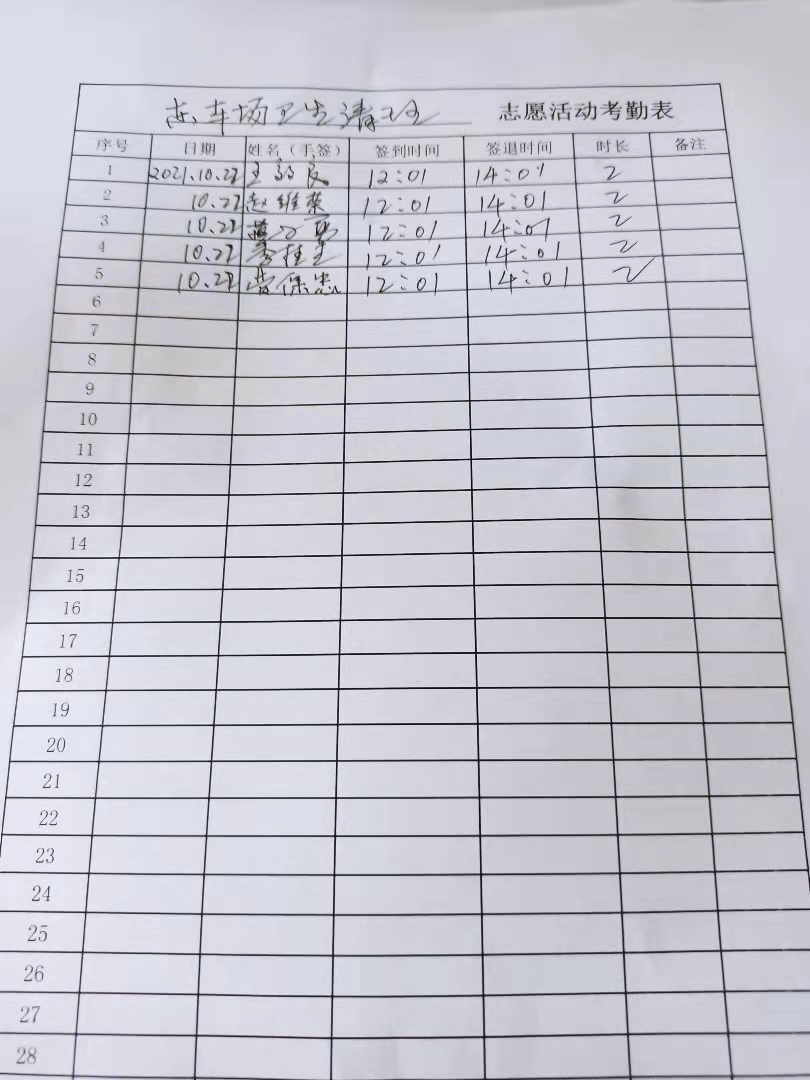 车场卫生清理 志愿活动考勤表
序号 日期 姓名(手签) 签到时间 签退时间 时长 备注
1 2021.10.27 王 良 12:01 14:01 2
2 10.27 赵维荣 12:01 14:01 2
3 10.27 12:01 14:01 2
4 10.27 李桂兰 12:01 14:01 2
5 10.27 曹保忠 12:01 14:01 2
6
7
8
9
10
11
12
13
14
15
16
17
18
19
20
21
22
23
24
25
26
27
28